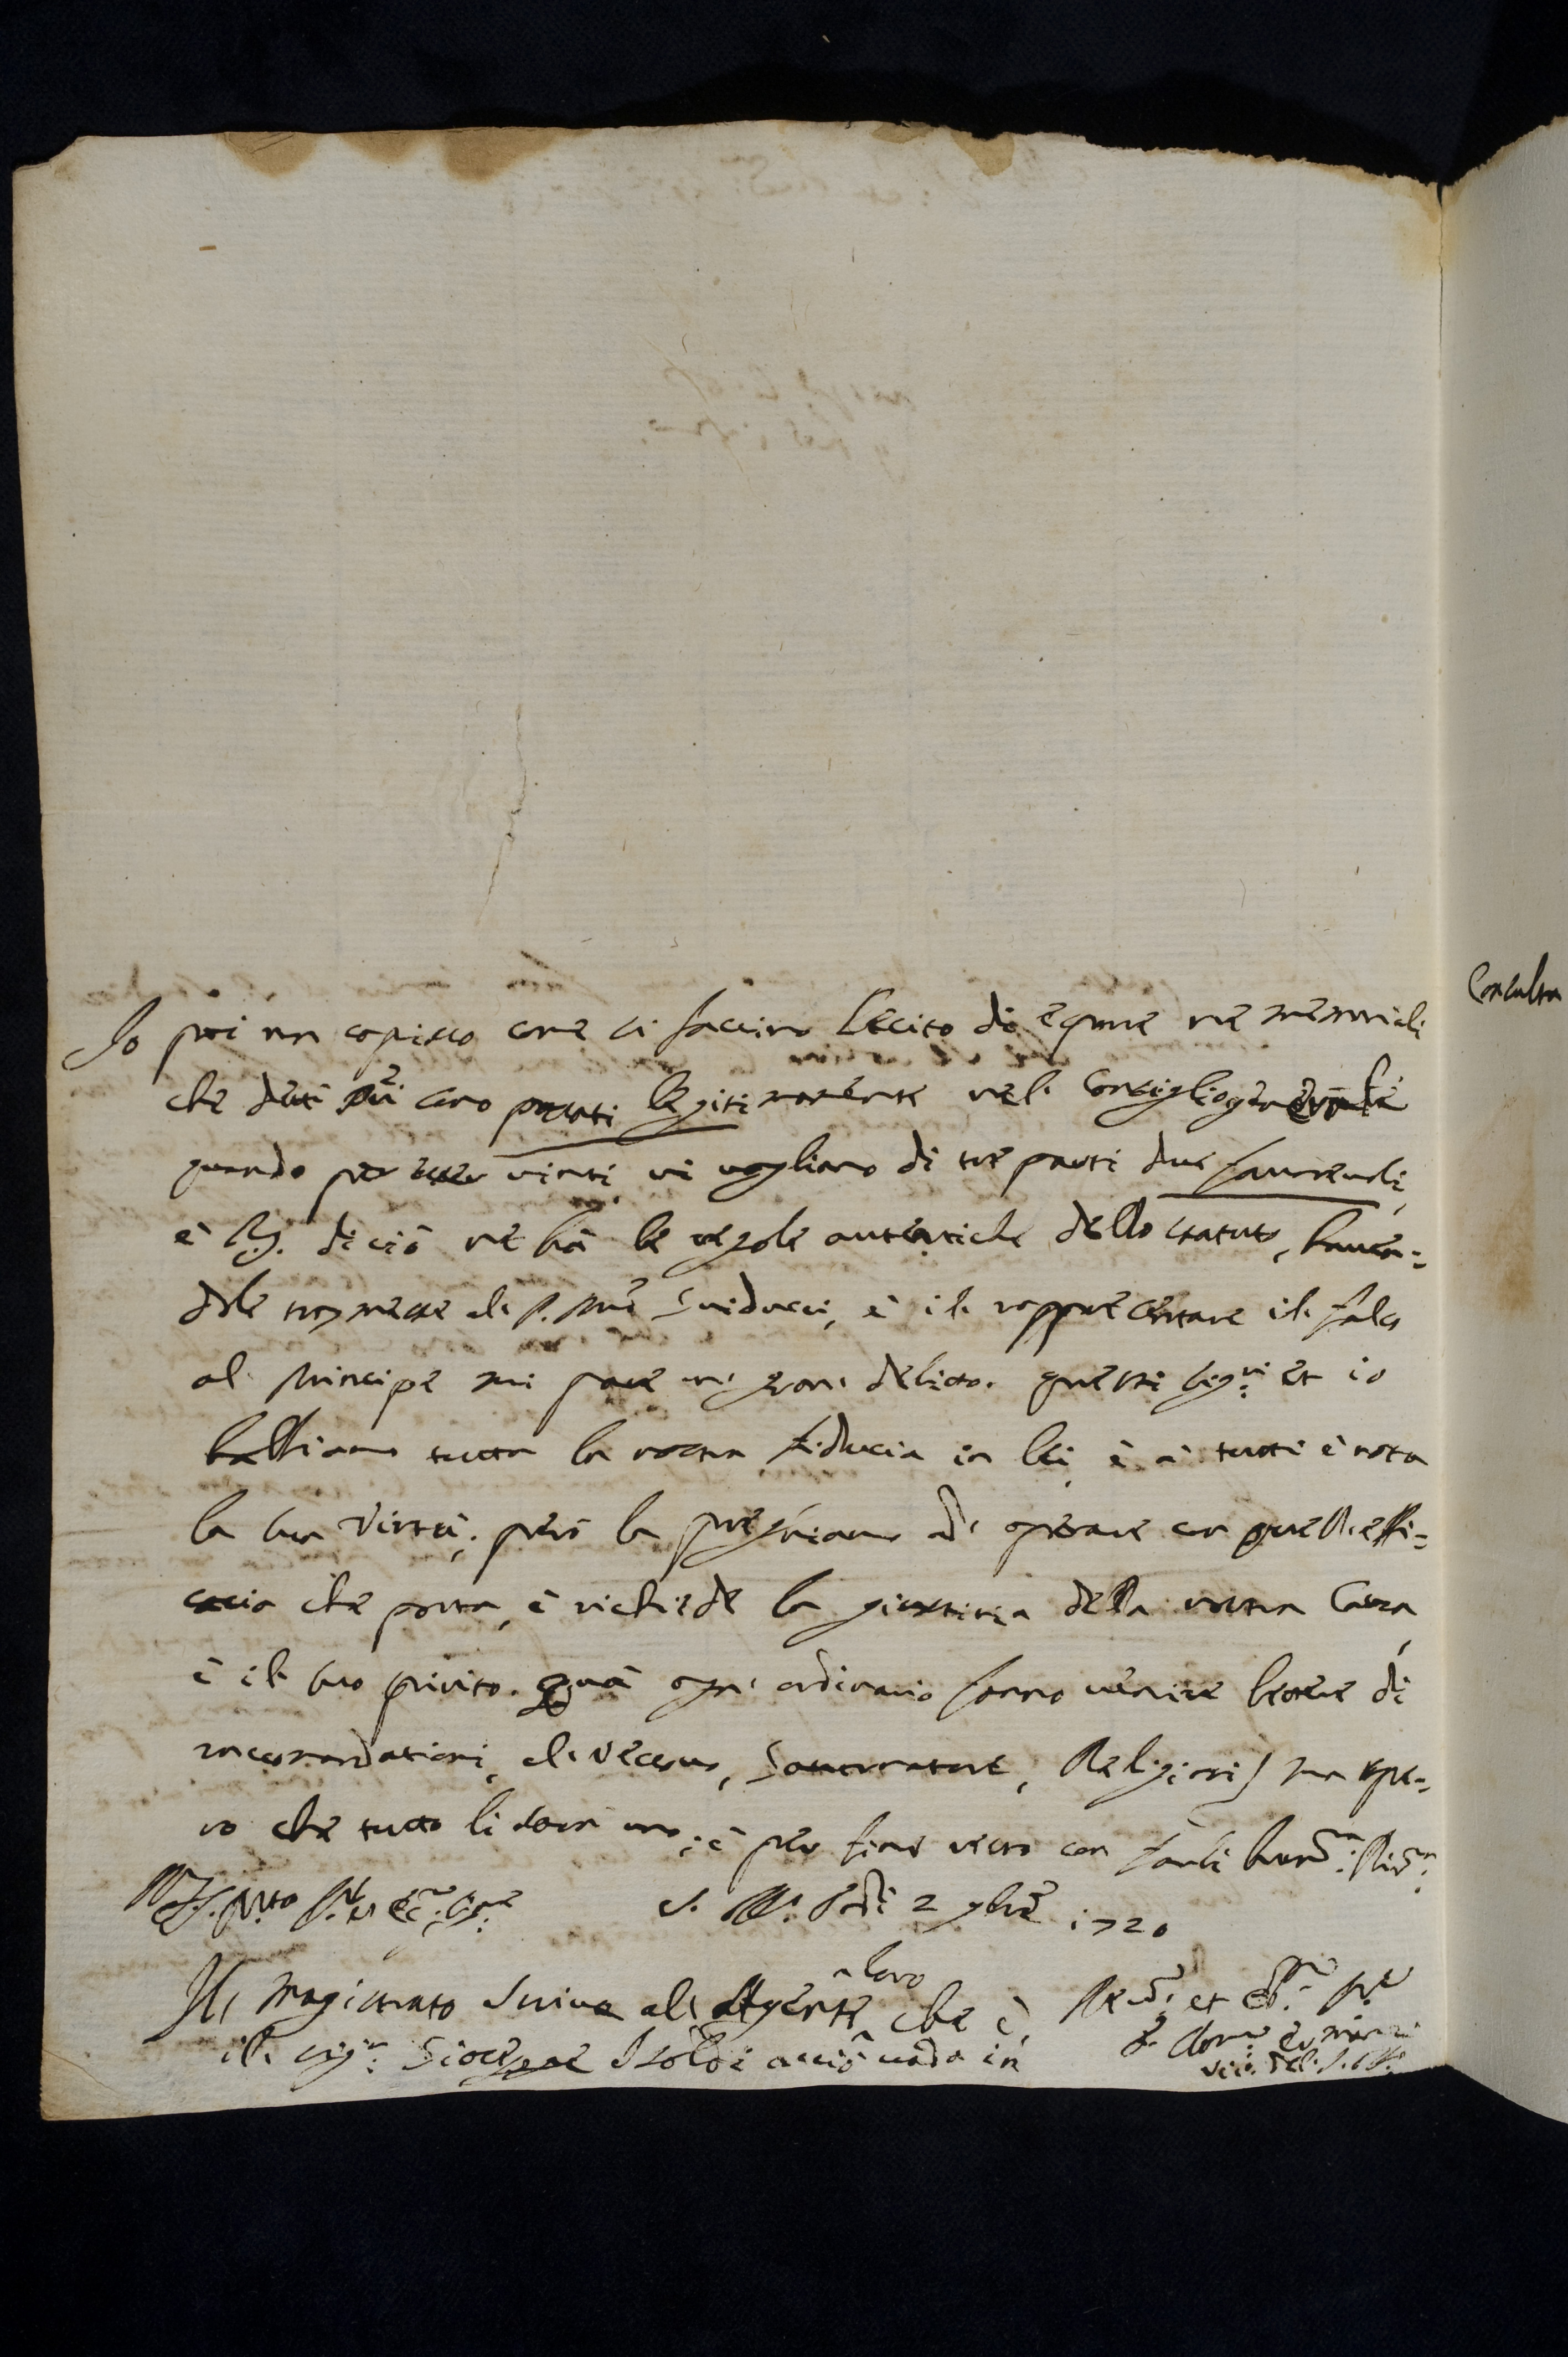 Io poi non capisco come si faccino lecito di esporre ne memoriali
che detti siano passati legitimamente nel Consiglio generale
quando per esser vinti vi vogliano di tre parti due favorevoli,
è V.S. di ciò ne hà le regole autentiche dello statuto, haven-
dole trasmesse al Guiducci, è il rappresentare il falso
al Principe mi pare un gran delitto. questi sig:ri et io
habbiamo tutta la nostra fiducia in lei è à tutti è nota
la sua virtù; però la preghiamo ad operare con quell'effi-
cacia che porta, è richiede la giustitia della nostra Causa,
è il suo privito. quà ogn'ordinario fanno venire lettere di
raccomandationi, al Vescovo, Governatore, Religiosi) ma spe-
ro che tutto li sarà vano; è per fine resto con farli hum:a Riv:a
2 9bre 1720
Il Magistrato scrive al Agente loro che è
il sig:r Gioseppe Isoldi acciò vada in
Consulta